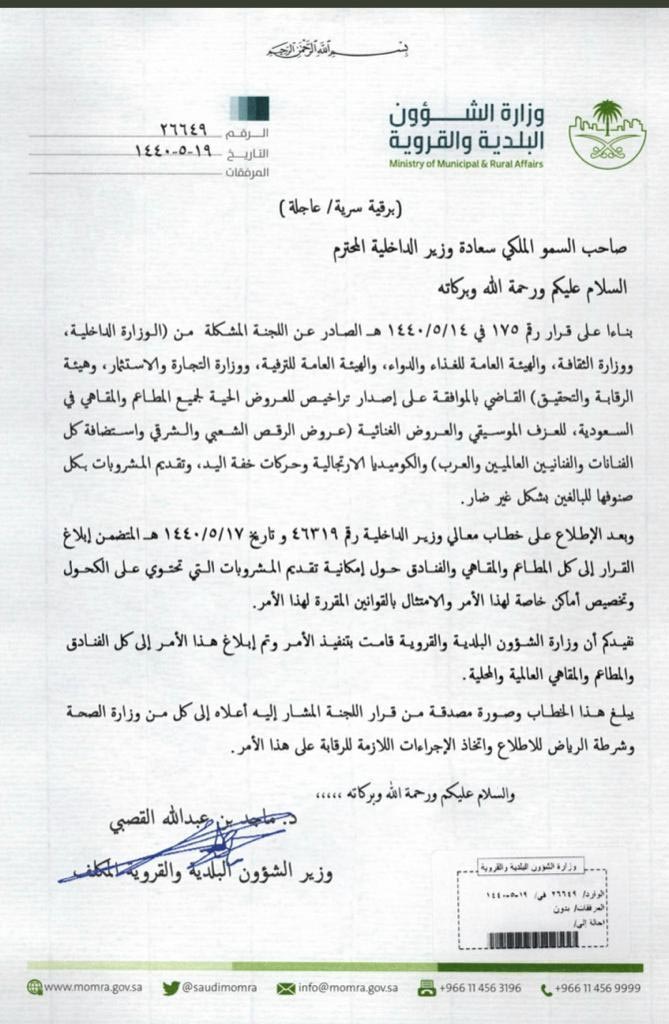 بسم الله الرحمن الرحيم
وزارة الشؤون
البلدية والقروية
Ministry of Municipal & Rural Affairs
الرقم ٢٦٦٤٩
التاريخ ١٩-٥-١٤٤٠
المرفقات
(برقية سرية/ عاجلة)
صاحب السمو الملكي سعادة وزير الداخلية المحترم
السلام عليكم ورحمة الله وبركاته
بناءا على قرار رقم ١٧٥ في ١٤٤٠/٥/١٤ هـ الصادر عن اللجنة المشكلة من (الوزارة الداخلية،
ووزارة الثقافة، والهيئة العامة للغذاء والدواء، والهيئة العامة للترفية، ووزارة التجارة والاستثمار، وهيئة
الرقابة والتحقيق) القاضي بالموافقة على إصدار تراخيص للعروض الحية لجميع المطاعم والمقاهي في
السعودية، للعزف الموسيقي والعروض الغنائية (عروض الرقص الشعبي والشرقي واستضافة كل
الفنانات والفنانيين العالميين والعرب) والكوميديا الارتجالية وحركات خفة اليد، وتقديم المشروبات بكل
صنوفها للبالغين بشكل غير ضار.
وبعد الإطلاع على خطاب معالي وزير الداخلية رقم ٤٦٣١٩ و تاريخ ١٤٤٠/٥/١٧ هـ المتضمن إبلاغ
القرار إلى كل المطاعم والمقاهي والفنادق حول إمكانية تقديم المشروبات التي تحتوي على الكحول
وتخصيص أماكن خاصة لهذا الأمر والامتثال بالقوانين المقررة لهذا الأمر.
نفيدكم أن وزارة الشؤون البلدية والقروية قامت بتنفيذ الأمر وتم إبلاغ هذا الأمر إلى كل الفنادق
والمطاعم والمقاهي العالمية والمحلية.
يبلغ هذا الخطاب وصورة مصدقة من قرار اللجنة المشار إليه أعلاه إلى كل من وزارة الصحة
وشرطة الرياض للاطلاع واتخاذ الإجراءات اللازمة للرقابة على هذا الأمر.
والسلام عليكم ورحمة الله وبركاته ،،،،،
د. ماجد بن عبدالله القصبي
وزير الشؤون البلدية والقروية المكلف
وزارة الشؤون البلدية والقروية
الوارد/ ٢٦٦٤٩ في/ ١٩-٥-١٤٤٠
المرفقات/ بدون
احالة إلى/
www.momra.gov.sa @saudimomra info@momra.gov.sa +966 11 456 3196 +966 11 456 9999